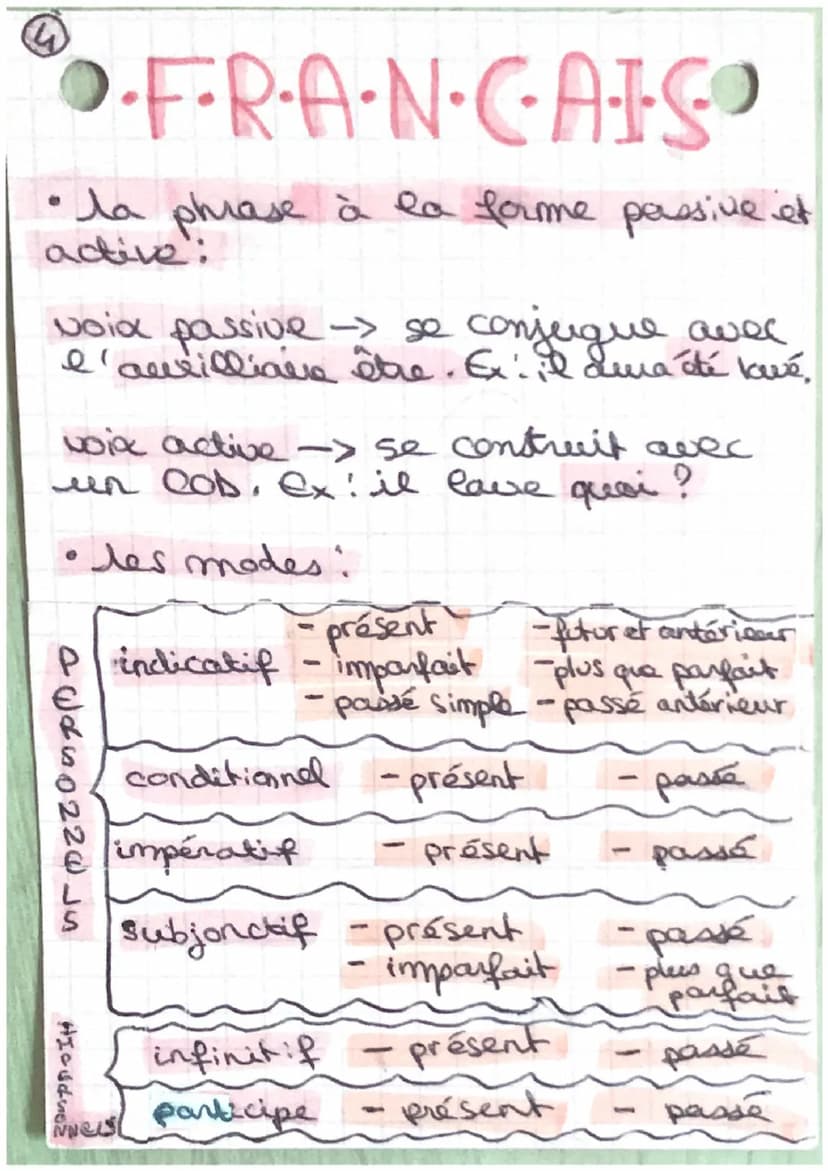 4
·F·R·A·N·C·A·I·S
• la phrase à la forme passive et
active :
voix passive -> se conjugue avec
l'auxilliaire être. Ex : il aura été lavé.
voix active -> se construit avec
un COD. Ex : il lave quoi ?
• les modes :
PERSONNELS
indicatif - présent - futur et antérieur
- imparfait - plus que parfait
- passé simple - passé antérieur
conditionnel - présent - passé
impératif - présent - passé
subjonctif - présent - passé
- imparfait - plus que
parfait
infinitif - présent - passé
participe - présent - passé